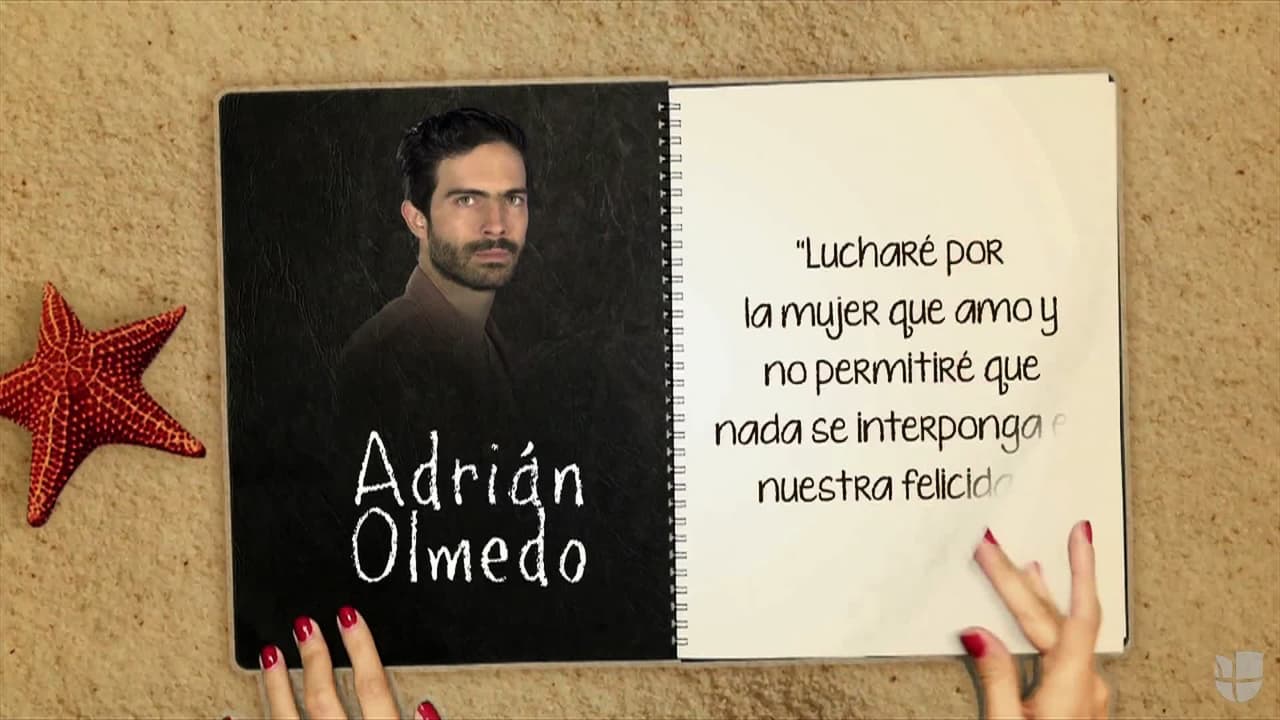 Adrián
Olmedo
"Lucharé por
la mujer que amo y
no permitiré que
nada se interponga
nuestra